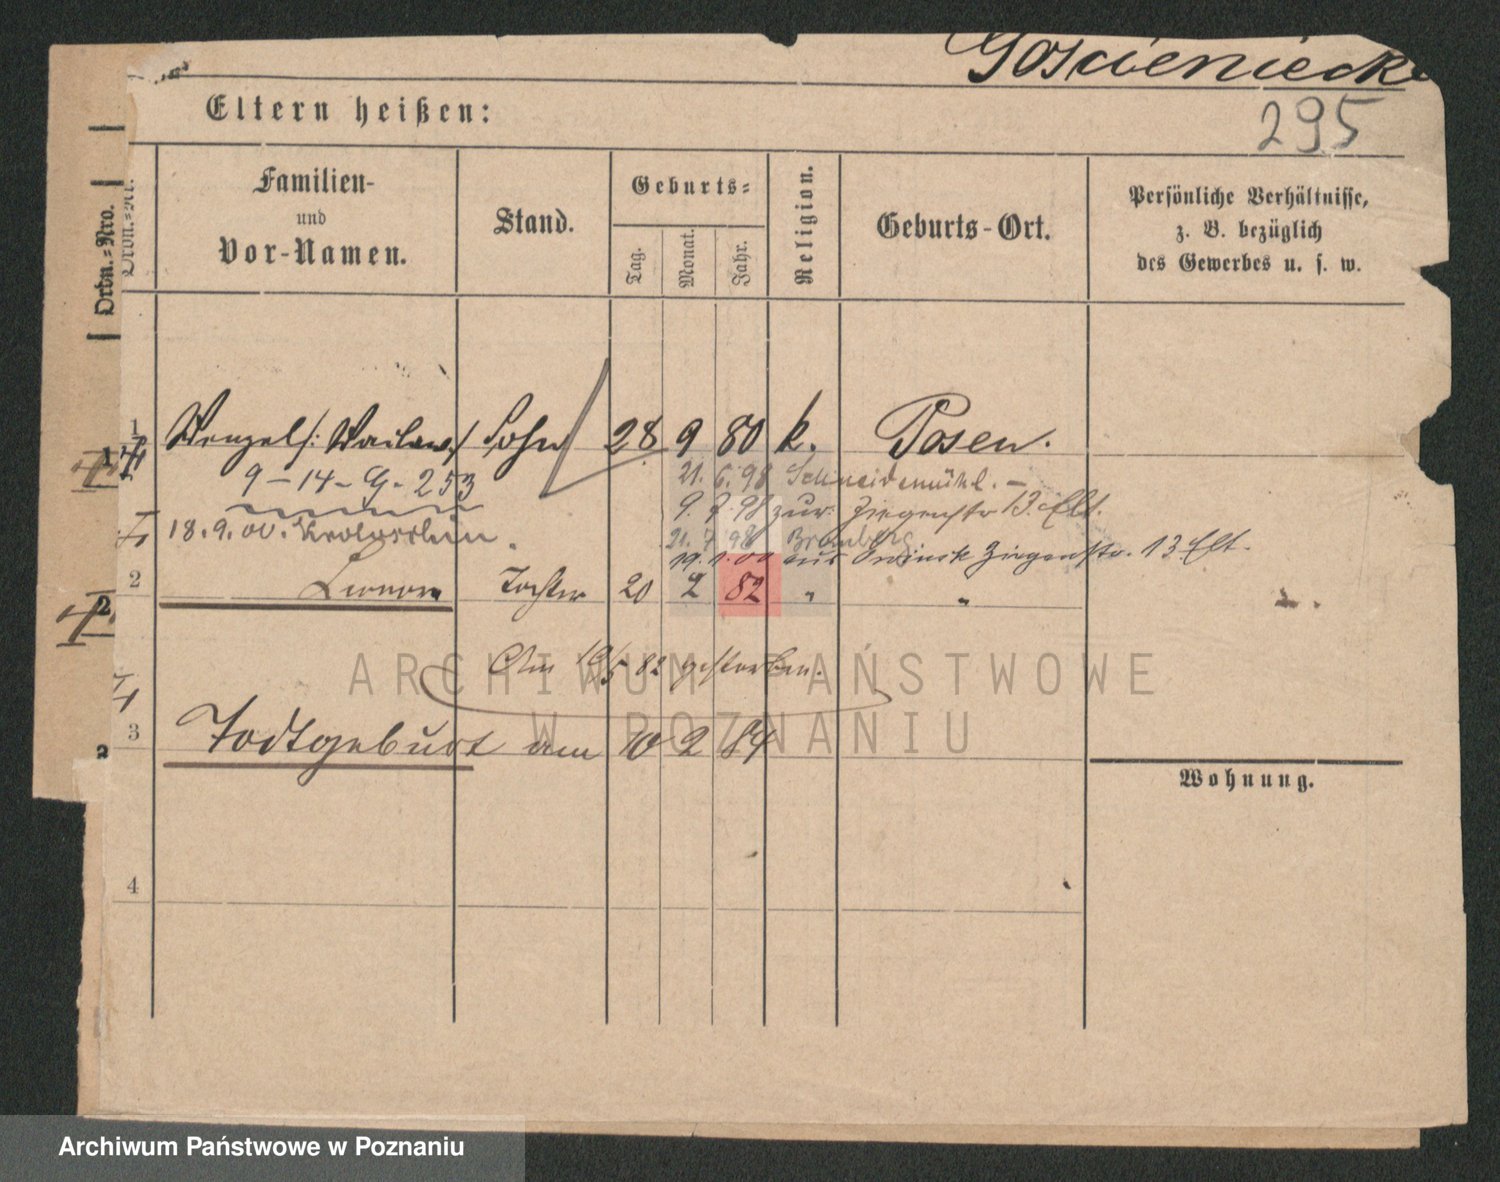 Goscieniecki
295
Eltern heißen:
Ordn.-Nro.
Ordn.-Nr.
Familien-
und
Vor-Namen.
Stand.
Geburts-
Tag.
Monat.
Jahr.
Religion.
Geburts-Ort.
Persönliche Verhältnisse,
z. B. bezüglich
des Gewerbes u. s. w.
1 Wenzel /: Wacław :/ Sohn 28 9 80 k. Posen.
9-14-G-253 21. 6. 98 Schneidemühl. -
9. 7. 98 zur Ziegenstr 13. Elt.
18.9.00. Krotoschin. 21. 7 98 Bromberg
19. 1. 00 aus Ziegenstr. 13 Elt.
2 Tochter 20 2 82 " "
Am 19/5 82 gestorben.
3 Todtgeburt am 10 2 84
Wohnung.
4
ARCHIWUM PAŃSTWOWE
W POZNANIU
Archiwum Państwowe w Poznaniu